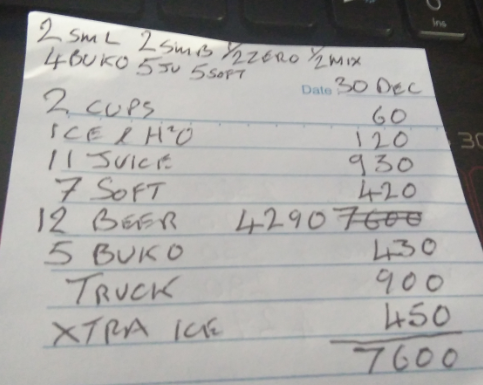 2 SML 2 SMB 1/2 ZERO 1/2 MIX
4 BUKO 5 JU 5 SOFT
Date 30 DEC
2 CUPS 60
ICE & H2O 120
11 JUICE 930
7 SOFT 420
12 BEER 4290 7600
5 BUKO 430
TRUCK 900
XTRA ICE 450
7600
Ins